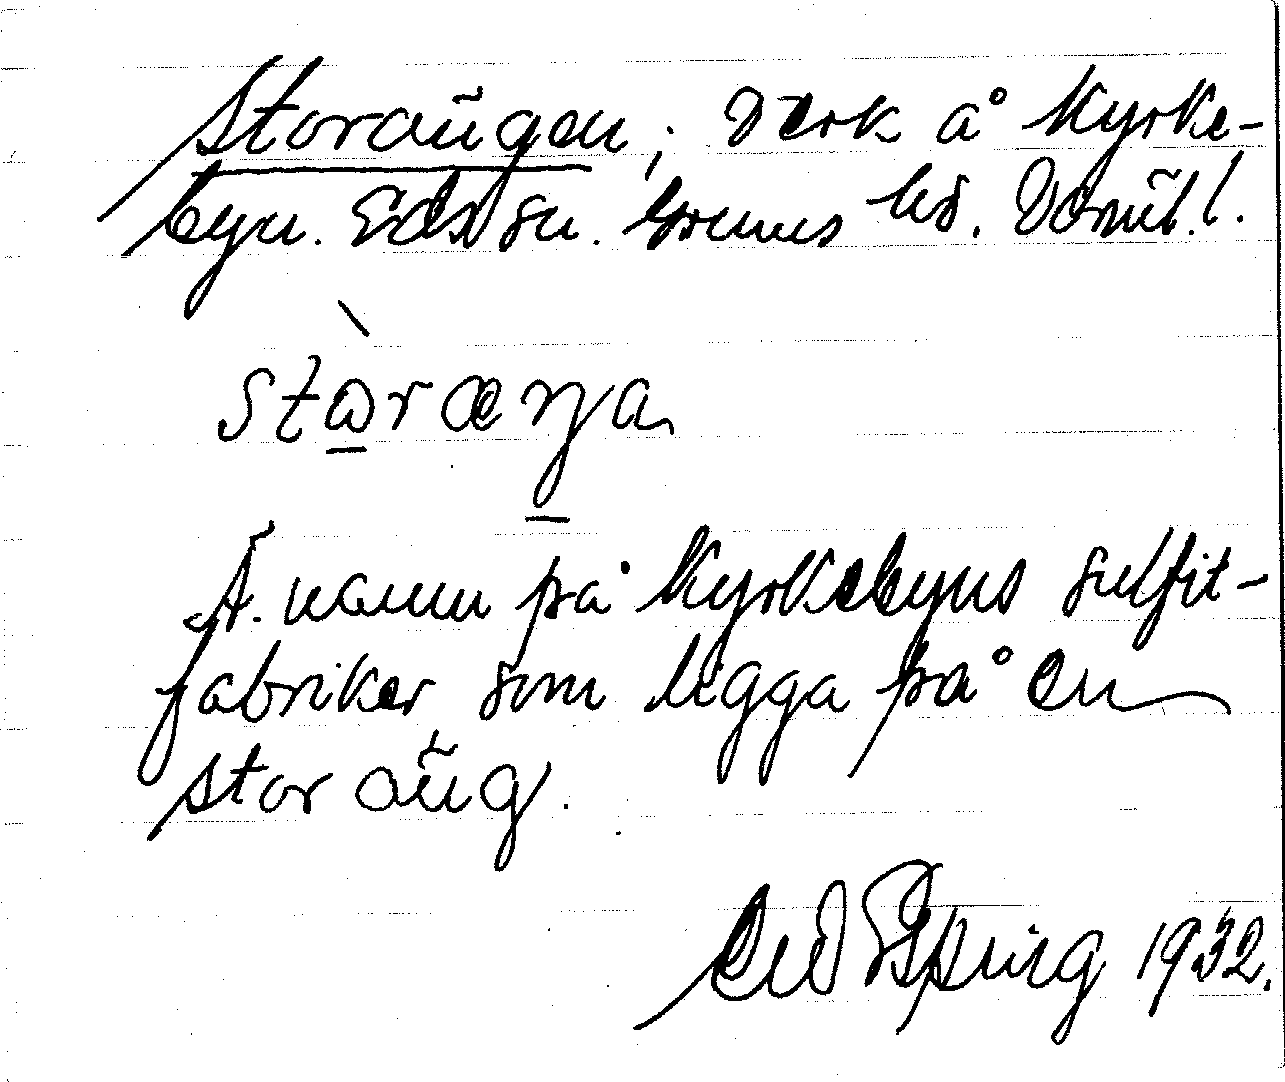 Storängen; Verk å Kyrke-
byn. Eds sn. Grums hd. Värml.
stɷ̀ræŋa
Ä. namn på Kyrkebyns sulfit-
fabriker som ligga på en
stor äng.
1932.